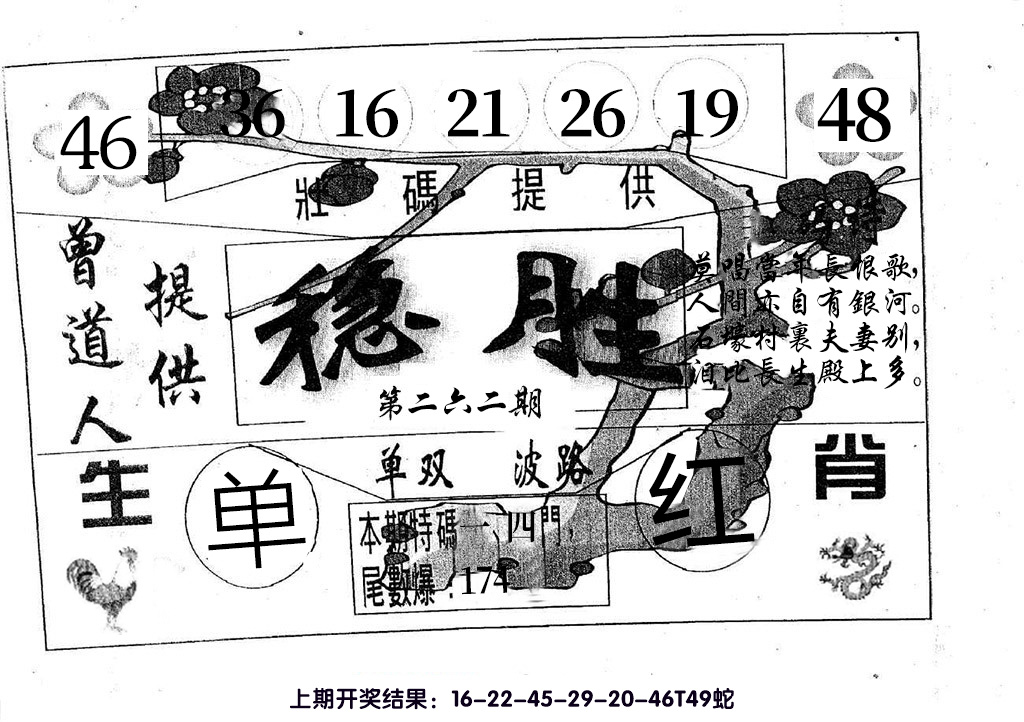 46 36 16 21 26 19 48
壯碼提供
特
曾道人
提供
稳胜
第二六二期
莫唱當年長恨歌,
人間亦自有銀河。
石壕村裏夫妻别,
泪比長生殿上多。
单双 波路
生肖
单
红
本期特碼一、四門,
尾數爆:174
上期开奖结果：16-22-45-29-20-46T49蛇